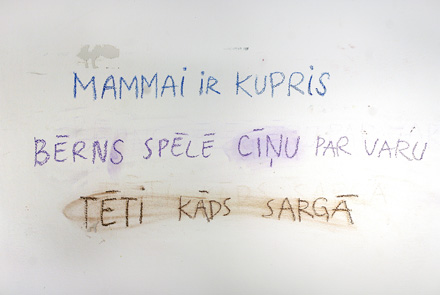 MAMMAI IR KUPRIS
BĒRNS SPĒLĒ CĪŅU PAR VARU
TĒTI KĀDS SARGĀ